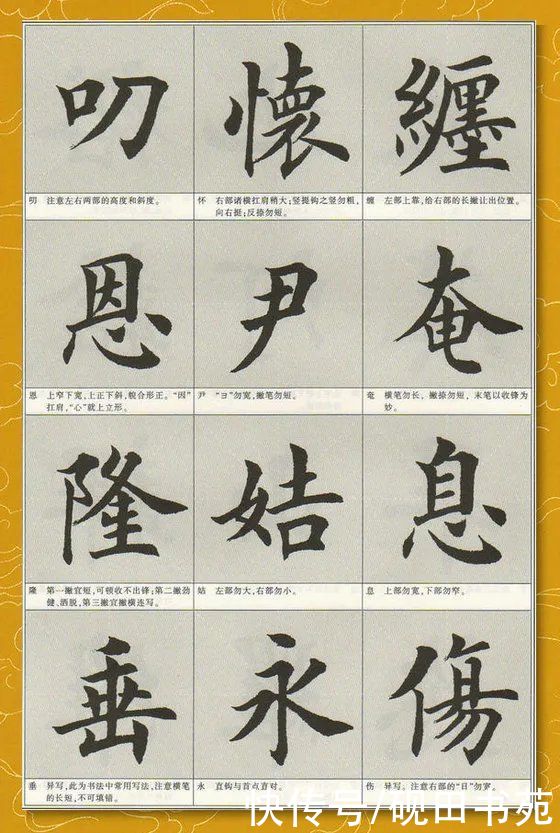 叨 懷 纏
叨 注意左右两部的高度和斜度。
怀 右部诸横扛肩稍大;竖提钩之竖勿粗,
向右挺;反捺勿短。
缠 左部上靠,给右部的长撇让出位置。
恩 尹 奄
恩 上窄下宽,上正下斜,貌合形正。“因”
扛肩,“心”就上立形。
尹 “ヨ”勿宽,撇笔勿短。
奄 横笔勿长,撇捺勿短,末笔以收锋为
妙。
隆 姞 息
隆 第一撇宜短,可顿收不出锋;第二撇劲
健、洒脱,第三撇宜撇横连写。
姞 左部勿大,右部勿小。
息 上部勿宽,下部勿窄。
垂 永 傷
垂 异写,此为书法中常用写法,注意横笔
的长短,不可填错。
永 直钩与首点直对。
伤 异写。注意右部的“日”勿宽。
快传号/砚田书苑